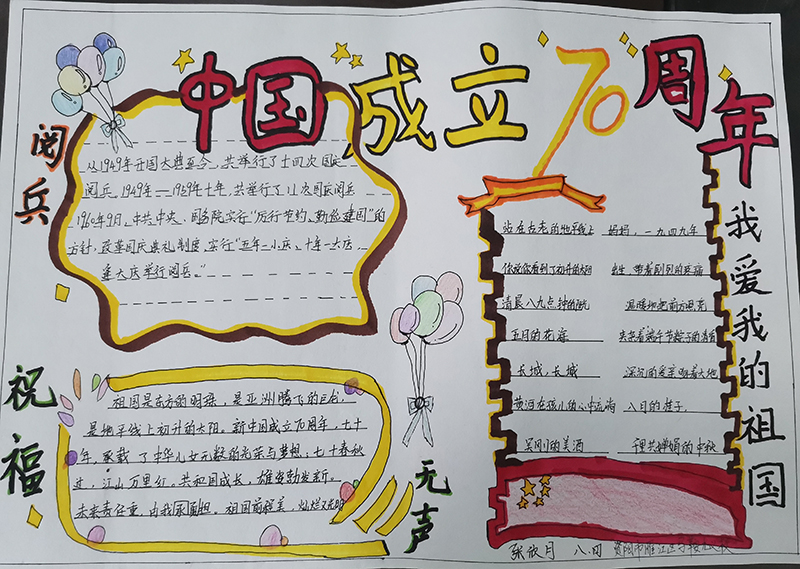 中国成立70周年
阅兵
从1949年开国大典至今,共举行了十四次国庆
阅兵。1949年—1959年十年,共举行了11次国庆阅兵
1960年9月,中共中央、国务院实行"厉行节约、勤俭建国"的
方针,改革国庆典礼制度,实行"五年一小庆、十年一大庆,
逢大庆举行阅兵。"
祝福
祖国是东方的明珠,是亚洲腾飞的巨龙,
是地平线上初升的太阳,新中国成立70周年,七十
年,承载了中华儿女无数的光荣与梦想,七十春秋
过,江山万里红。共和国成长,雄姿勃发新。
未来责任重,由我来承担。祖国前程美,灿烂又光明
无声
我爱我的祖国
站在古老的地平线上 妈妈,一九四九年
你说你看到了初升的太阳 新生,带着剧烈的疼痛
清晨八九点钟的阳光 温暖地把前方照亮
五月的花海
长城,长城 深沉的爱
黄河在孩儿的心中流淌 八月的桂子
吴刚的美酒 千里共婵娟的中秋
张欣月 八.四